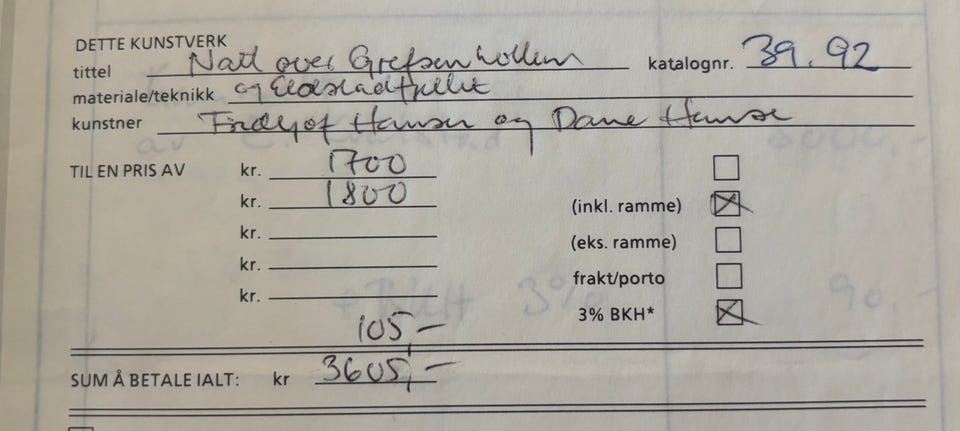 DETTE KUNSTVERK
tittel Natt over Grefsenkollen katalognr. 39. 92
materiale/teknikk og
kunstner Fridtjof Hansen og Dane Hanse
TIL EN PRIS AV kr. 1700
kr. 1800 (inkl. ramme)
kr. (eks. ramme)
kr. frakt/porto
kr. 3% BKH*
105,-
SUM Å BETALE IALT: kr 3605,-